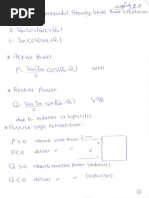 Sinusoidal Steady-State Power Calculation
V = Vm cos(ωt + θv)
i = Im cos(ωt + θi)
* Active Power
P = Vm Im / 2 cos(θv - θi) watt
* Reactive Power
Q = Vm Im / 2 sin(θv - θi) VAR
due to inductor or capacitor.
* Passive Sign Convention:
P>0 absorb Power
P<0 deliver " "
Q>0 absorb reactive Power (Inductor)
Q<0 deliver " " (Capacitor).